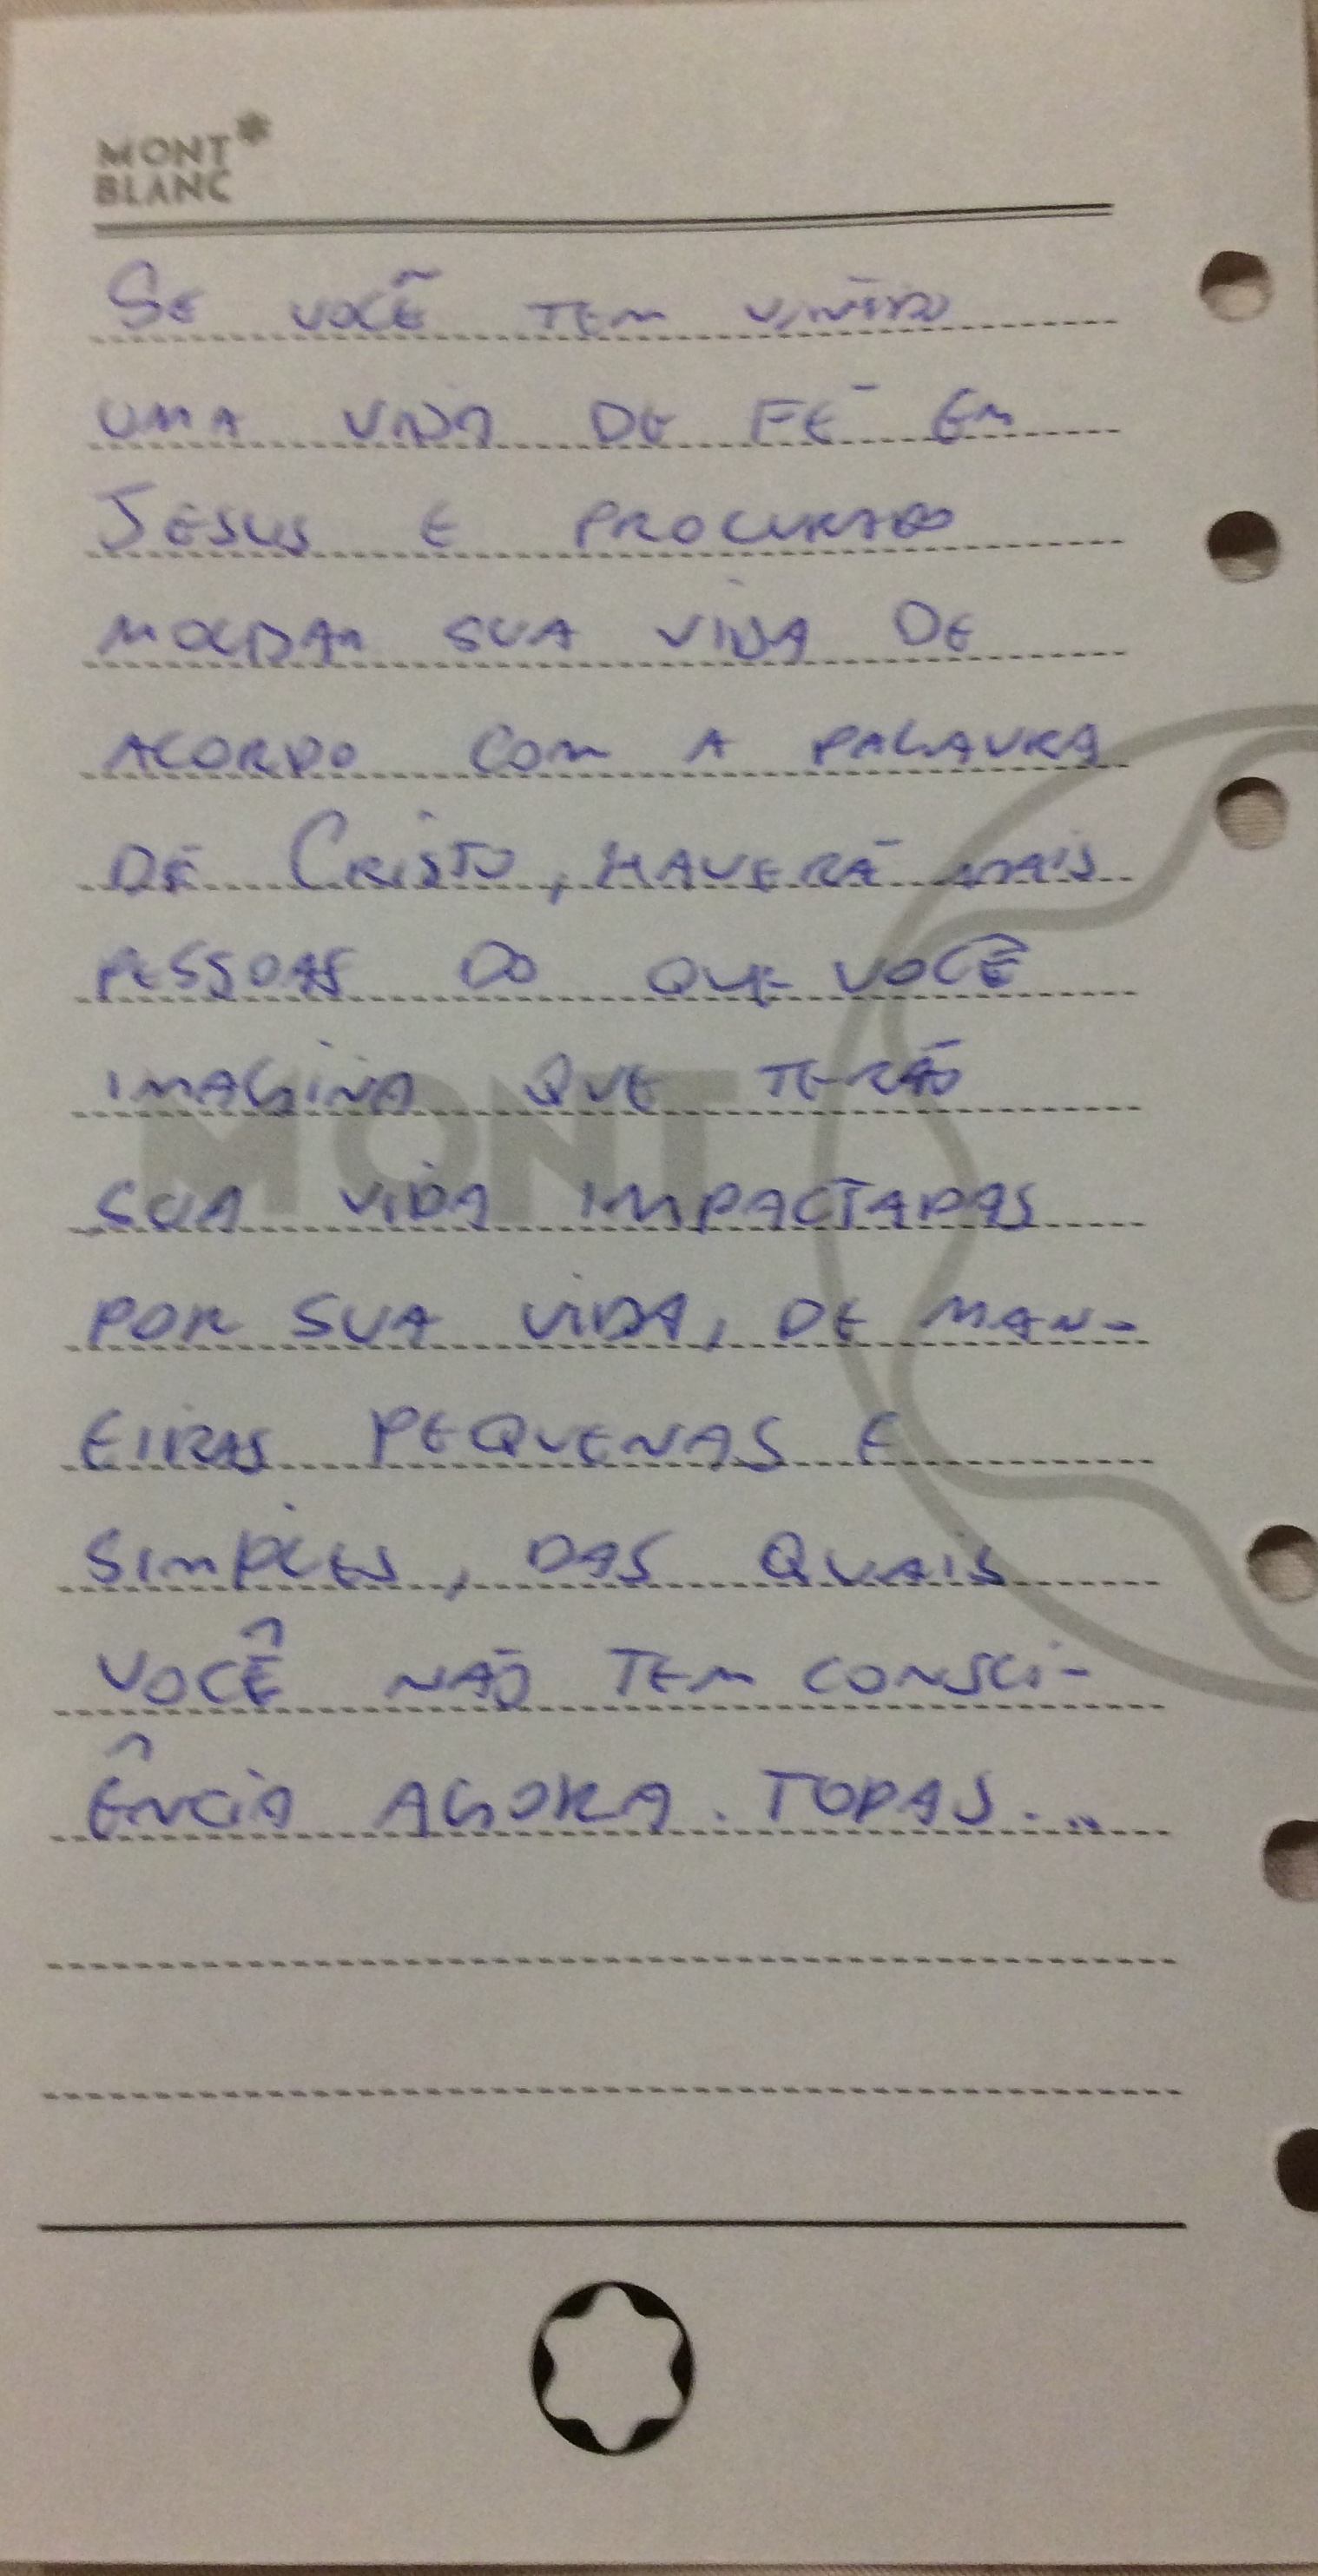 MONT
BLANC
SE VOCÊ TEM VIVIDO
UMA VIDA DE FÉ EM
JESUS E PROCURADO
MOLDAR SUA VIDA DE
ACORDO COM A PALAVRA
DE CRISTO, HAVERÁ MAIS
PESSOAS DO QUE VOCÊ
IMAGINA QUE TERÃO
MONT
SUA VIDA IMPACTADAS
POR SUA VIDA, DE MAN-
EIRAS PEQUENAS E
SIMPLES, DAS QUAIS
VOCÊ NÃO TEM CONSCI-
ÊNCIA AGORA. TODAS...